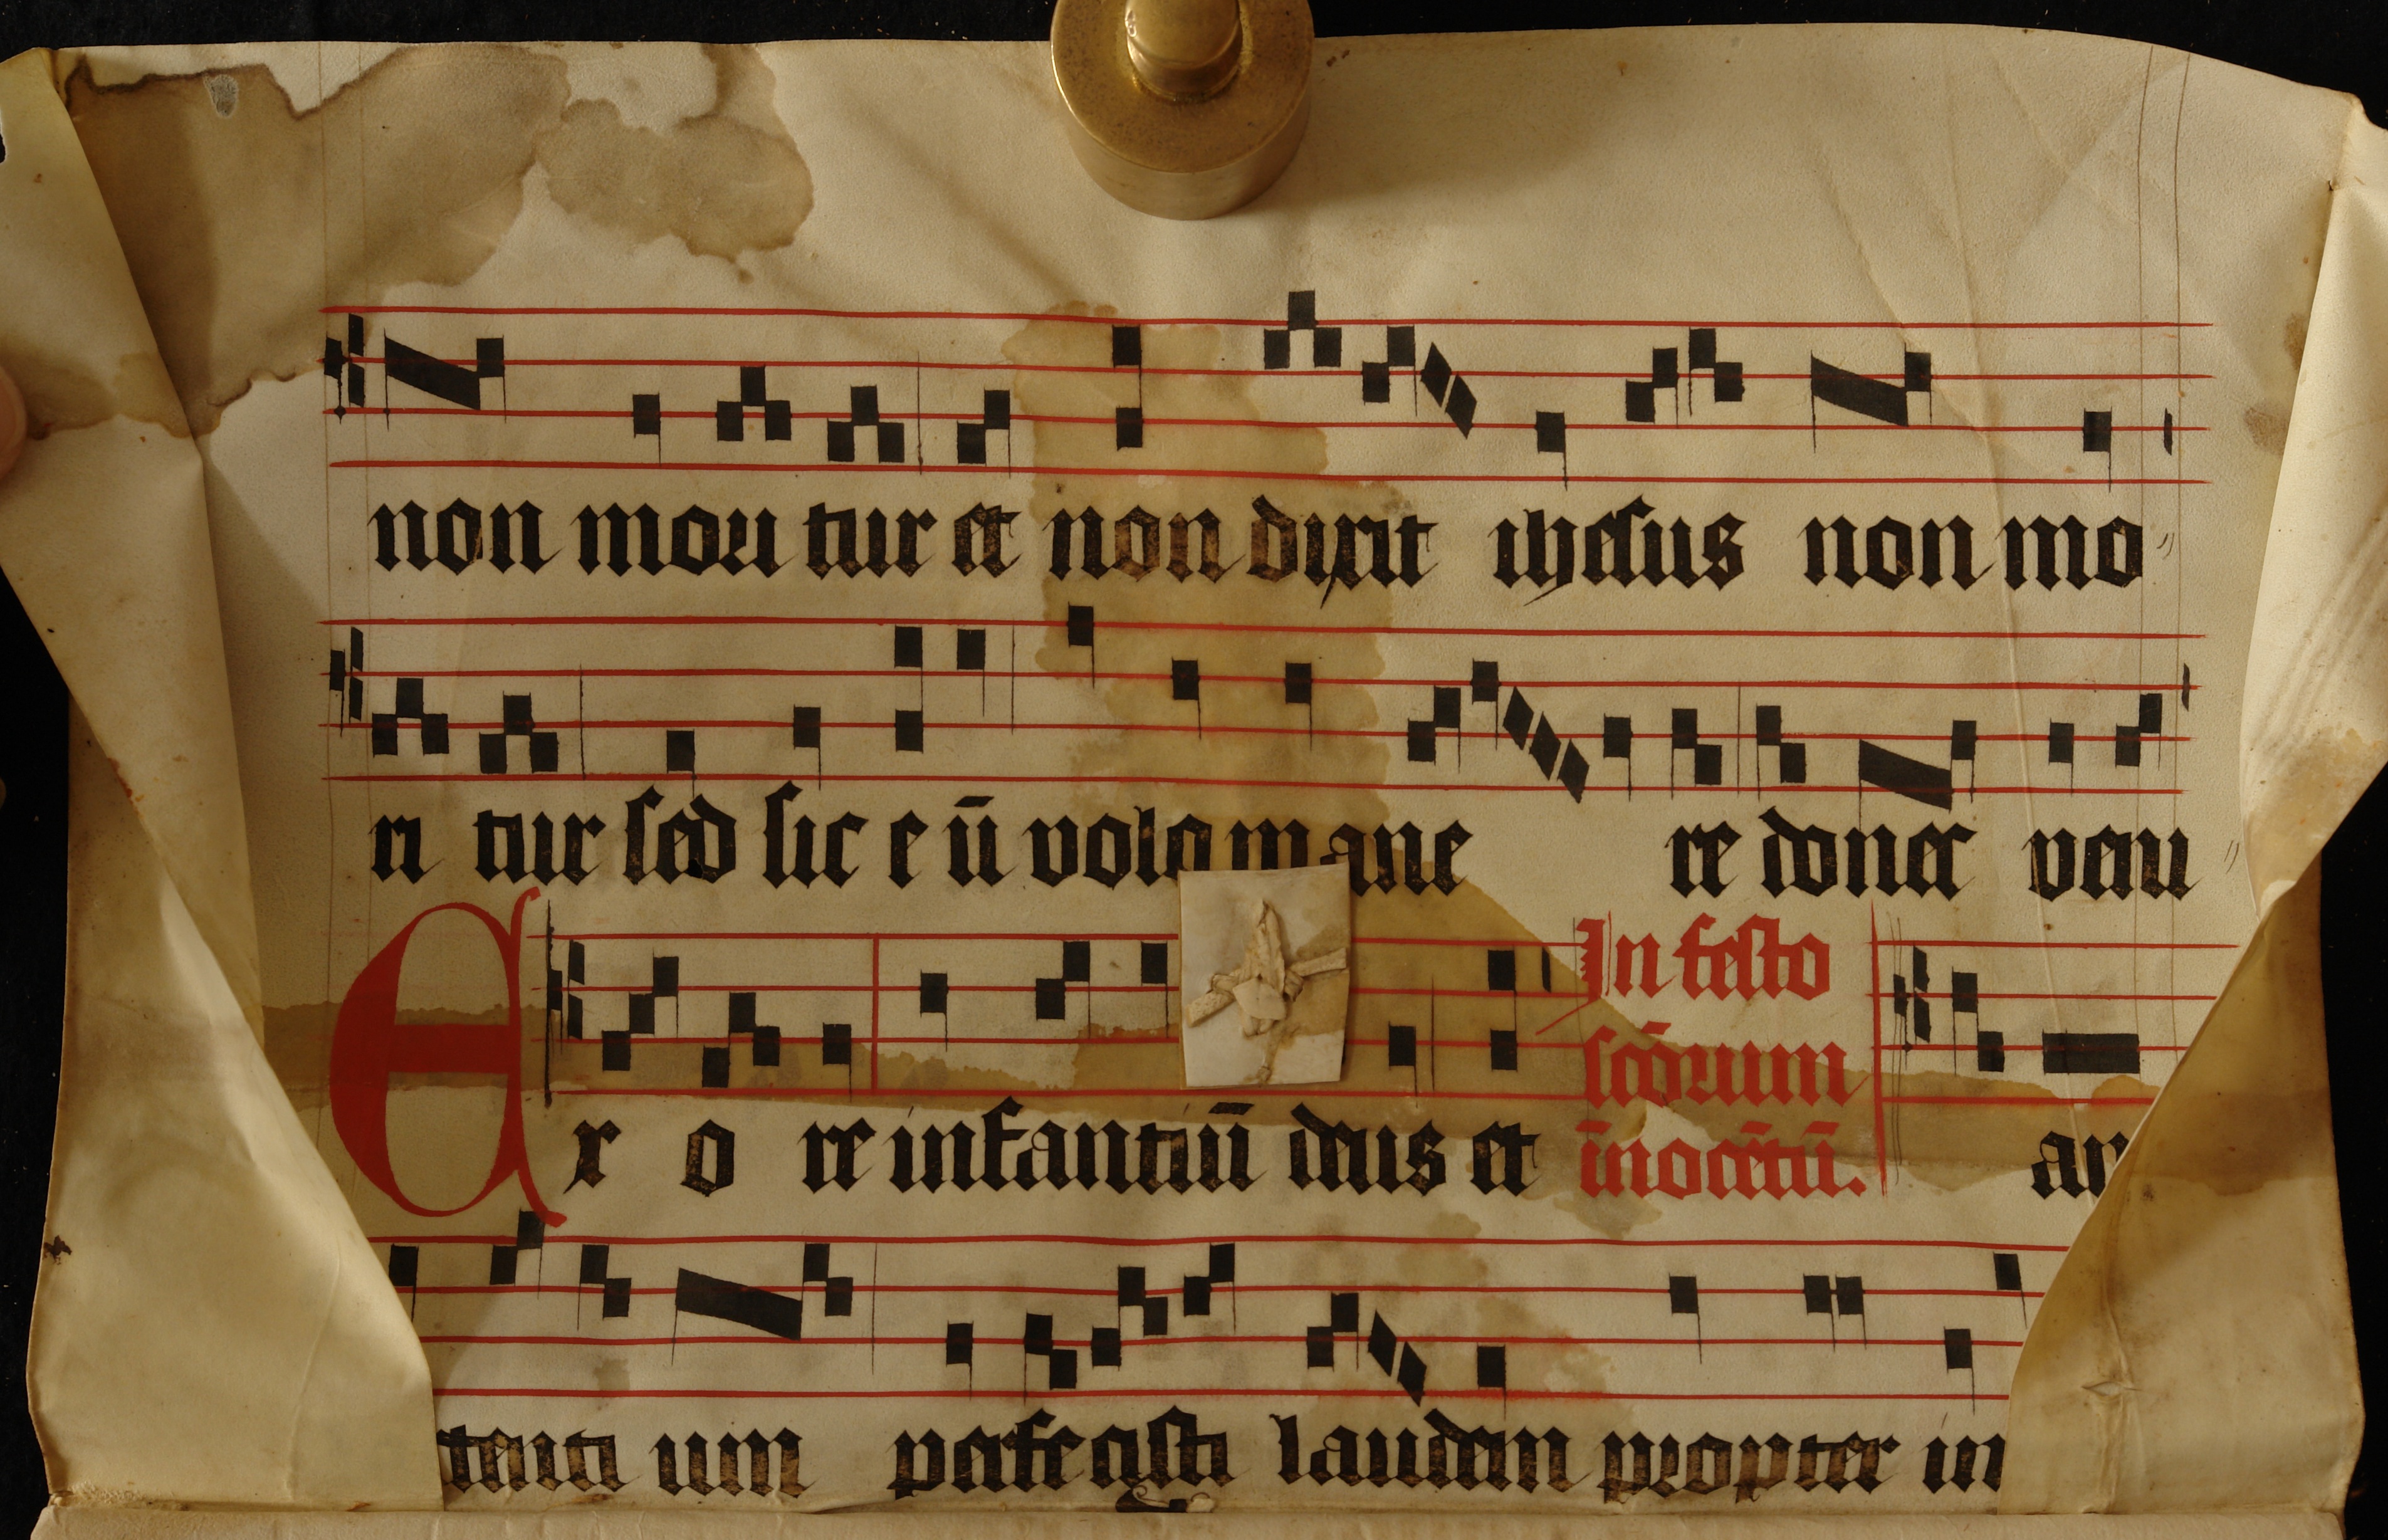 non mori tur et non dixit ihesus non mo
ri tur sed sic e ū volo mane re donec veni
Ex o re infantiū deus et
In festo
scōrum
īnocētū.
tenti um perfecisti laudem propter in